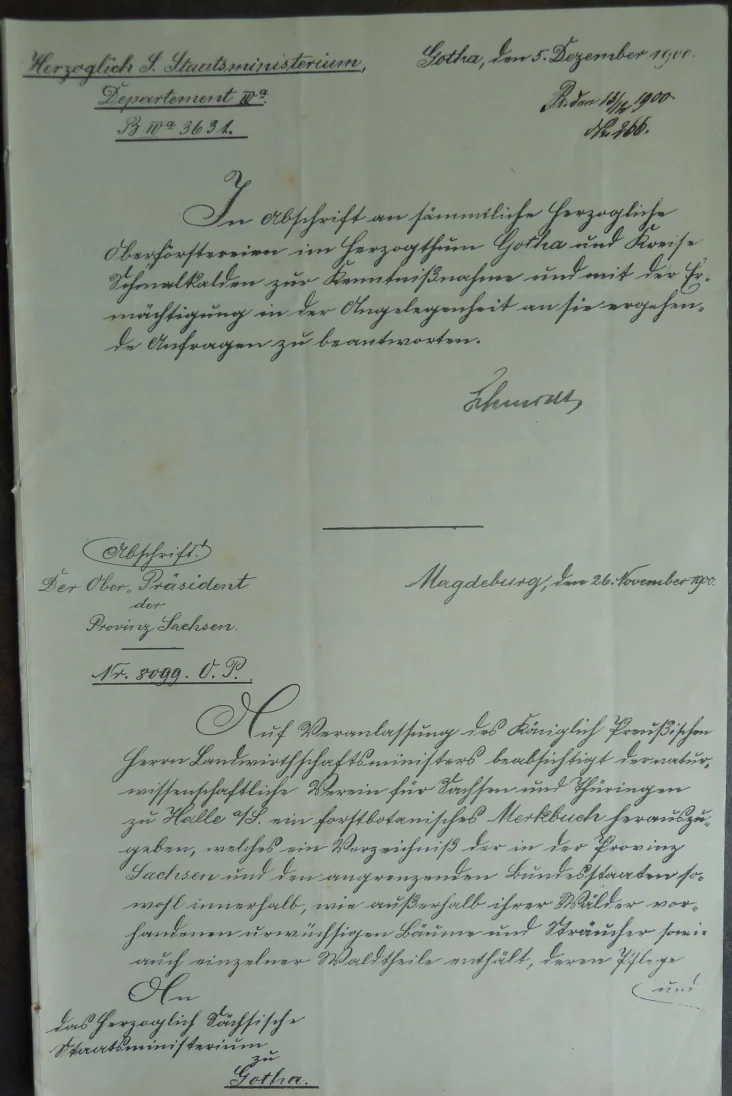 Herzoglich S. Staatsministerium,
Departement IVa.
B IVa 3631.
Gotha, den 5. Dezember 1900.
Pr. den 13/12 1900.
No. 266.
In Abschrift an sämmtliche Herzogliche
Oberförstereien im Herzogthum Gotha und Kreise
Schmalkalden zur Kenntnißnahme und mit der Er-
mächtigung in der Angelegenheit an sie ergehen-
de Anfragen zu beantworten.
Abschrift!
Der Ober-Präsident
der
Provinz Sachsen.
Nr. 8099. O. P.
Magdeburg, den 26. November 1900.
Auf Veranlassung des Königlich Preußischen
Herrn Landwirthschaftsministers beabsichtigt der natur-
wissenschaftliche Verein für Sachsen und Thüringen
zu Halle a/S. ein forstbotanisches Merkbuch herauszu-
geben, welches ein Verzeichniß der in der Provinz
Sachsen und den angrenzenden Bundesstaaten so-
wohl innerhalb, wie außerhalb ihrer Wälder vor-
handenen urwüchsigen Bäume und Sträucher sowie
auch einzelner Waldtheile enthält, deren Pflege
und
An
das Herzoglich Sächsische
Staatsministerium
zu
Gotha.